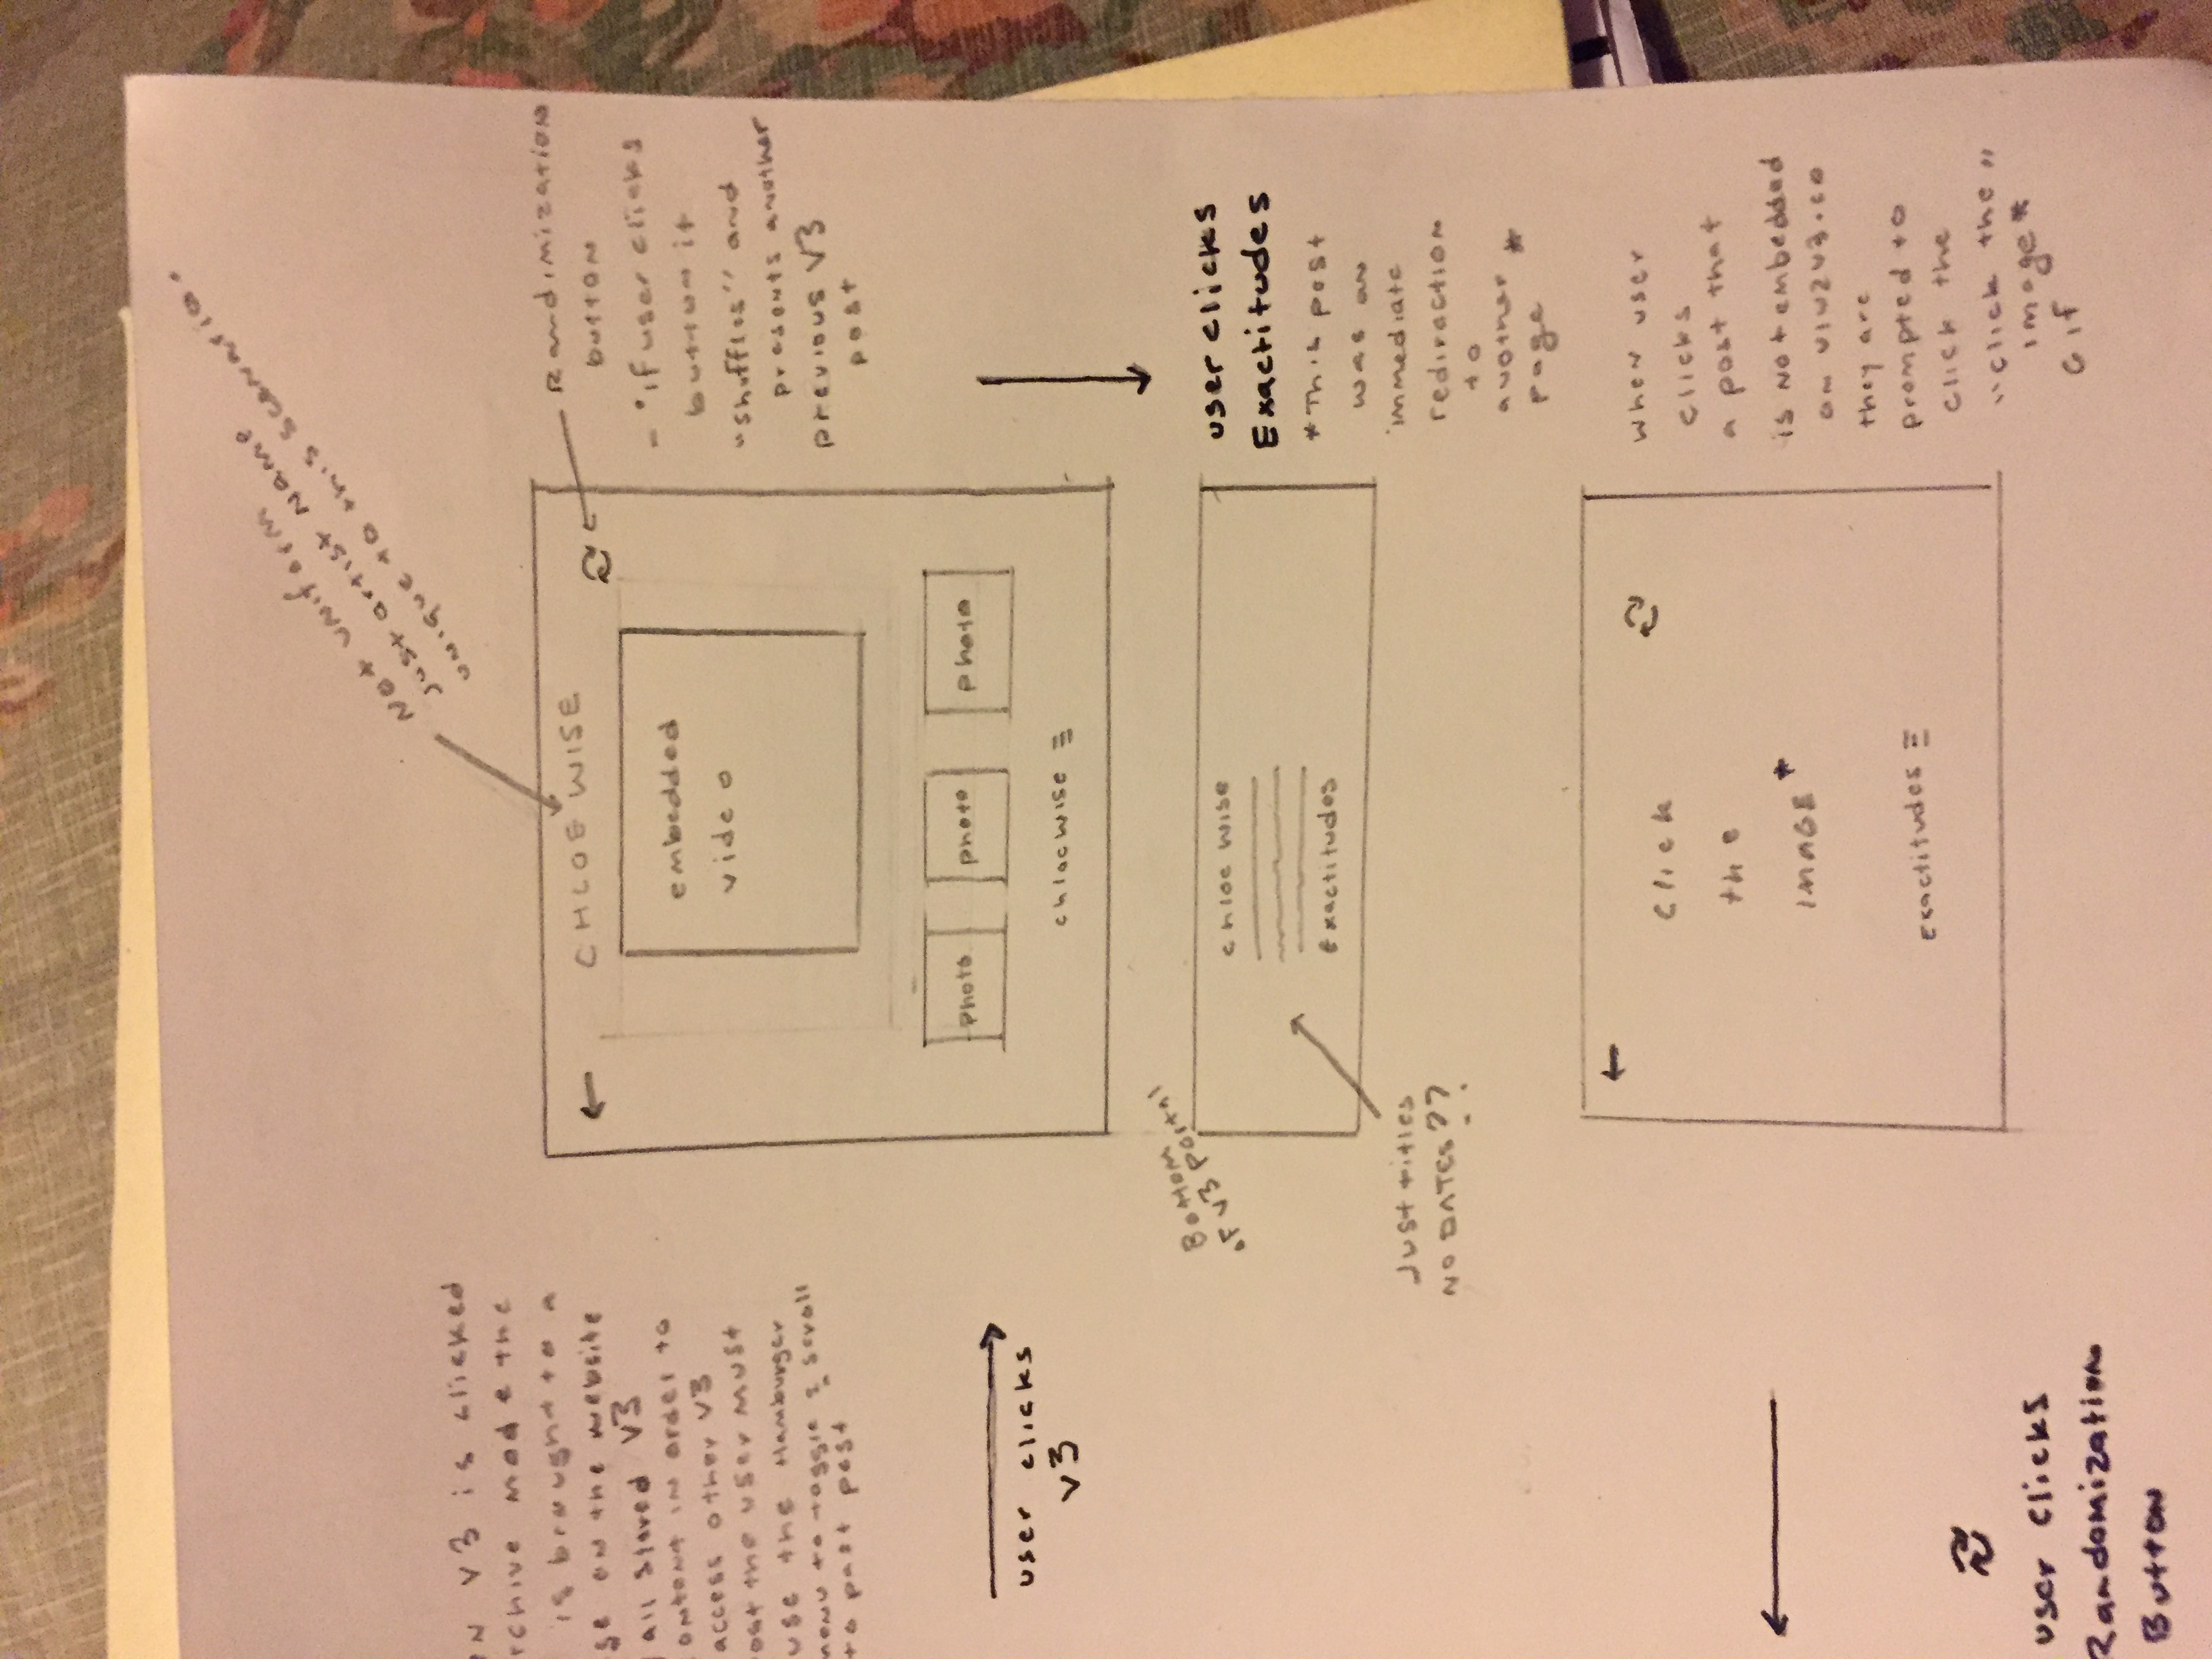 Not uniform
just artist name
unique to this scenario.
V3 is clicked
mode the
is brought to a
on the website
all stored V3
in order to
access other V3
the user must
use the Hamburger
menu to toggle & scroll
to past post
user clicks
V3
←
CHLOE WISE
embedded
video
photo
photo
photo
chloewise ≡
Randimization
button
- "if user clicks
button it
"shuffles" and
presents another
previous V3
post
Bottom
of V3 portal
chloe wise
Exactitudes
Just titles
NO DATES??
user clicks
Exactitudes
*This post
was an
immediate
rediraction
to
another
page *
←
Click
the
IMAGE*
Exactitudes ≡
when user
clicks
a post that
is Not embedded
on v1v2v3.co
they are
prompted to
click the
"click the"
image*
Gif
user clicks
Randomization
Button